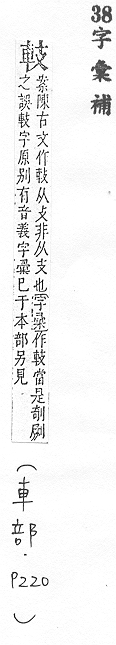 38字彙補
䡋
案陳古文作𨌤从攴非从支也字彙作䡋當是刻𠛴
之誤䡋字原别有音義字彙已于本部另見
(車部.P220)